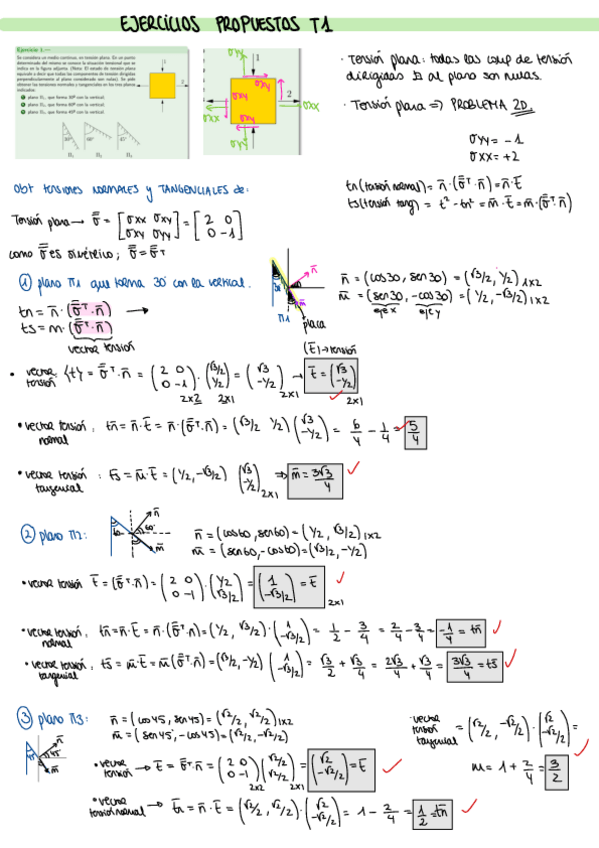 EJERCICIOS PROPUESTOS T1
Ejercicio 1.—
Se considera un medio continuo, en tensión plana. En un punto
determinado del mismo se conoce la situación tensional que se
indica en la figura adjunta. (Nota: El estado de tensión plana
equivale a decir que todas las componentes de tensión dirigidas
perpendicularmente al plano considerado son nulas). Se pide
obtener las tensiones normales y tangenciales en los tres planos
indicados:
1 plano Π₁, que forma 30º con la vertical.
2 plano Π₂, que forma 60º con la vertical.
3 plano Π₃, que forma 45º con la vertical.
1
2
30º 60º 45º
Π₁ Π₂ Π₃
σyy 1
σxy
σxy σxy 2
σxx σxx
σxy
σyy
· Tensión plana: todas las comp de tensión
dirigidas ⊥ al plano son nulas.
· Tensión plana => PROBLEMA 2D.
σyy = -1
σxx = +2
tn (tensión normal) = n̄·(σ̿ᵀ·n̄) = n̄·t̄
ts (tensión tang) = t² - tn² = m̄·t̄ = m̄·(σ̿ᵀ·n̄)
Obt TENSIONES NORMALES y TANGENCIALES de:
Tensión plana → σ̿ = [σxx σxy; σxy σyy] = [2 0; 0 -1]
como σ̿ es simétrico; σ̿ = σ̿ᵀ
① plano π1 que forma 30º con la vertical.
tn = n̄·(σ̿ᵀ·n̄) →
ts = m·(σ̿ᵀ·n̄)
vector tensión
30 n̄ m̄
π1
placa
n̄ = (cos30, sen30) = (√3/2, 1/2) 1x2
m̄ = (sen30, -cos30) = (1/2, -√3/2) 1x2
eje x eje y
(t̄) → tensión
• vector tensión: {t} = σ̿ᵀ·n̄ = (2 0; 0 -1)·(√3/2; 1/2) = (√3; -1/2) → t̄ = (√3; -1/2)
2x2 2x1 2x1 2x1
• vector tensión normal: tn̄ = n̄·t̄ = n̄·(σ̿ᵀ·n̄) = (√3/2 1/2)(√3; -1/2) = 6/4 - 1/4 = 5/4
• vector tensión tangencial: t̄s = m̄·t̄ = (1/2, -√3/2) (√3; -1/2) 2x1 => m̄ = 3√3/4
② plano π2:
60 n̄ 60º m̄
n̄ = (cos60, sen60) = (1/2, √3/2) 1x2
m̄ = (sen60, -cos60) = (√3/2, -1/2)
• vector tensión t̄ = (σ̿ᵀ·n̄) = (2 0; 0 -1)·(1/2; √3/2) = (1; -√3/2) = t̄
2x1
• vector tensión normal: tn̄ = n̄·t̄ = n̄·(σ̿ᵀ·n̄) = (1/2, √3/2)·(1; -√3/2) = 1/2 - 3/4 = 2/4 - 3/4 = -1/4 = tn̄
• vector tensión tangencial: ts̄ = m̄·t̄ = m̄(σ̿ᵀ·n̄) = (√3/2, -1/2)(1; -√3/2) = √3/2 + √3/4 = 2√3/4 + √3/4 = 3√3/4 = ts̄
③ plano π3:
45 n̄ 45º m̄
n̄ = (cos45, sen45) = (√2/2, √2/2) 1x2
m̄ = (sen45, -cos45) = (√2/2, -√2/2)
• vector tensión → t̄ = σ̿ᵀ·n̄ = (2 0; 0 -1)(√2/2; √2/2) = (√2; -√2/2) = t̄
2x2 2x1
• vector tensión normal → t̄n = n̄·t̄ = (√2/2, √2/2)·(√2; -√2/2) = 1 - 2/4 = 1/2 = tn̄
· vector tensión tangencial = (√2/2, -√2/2)·(√2; -√2/2) =
m = 1 + 2/4 = 3/2